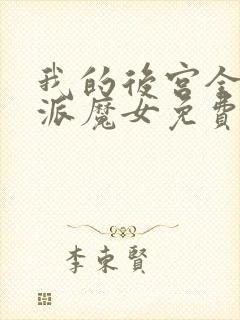 我的後宮全
派魔女免費
李東賢